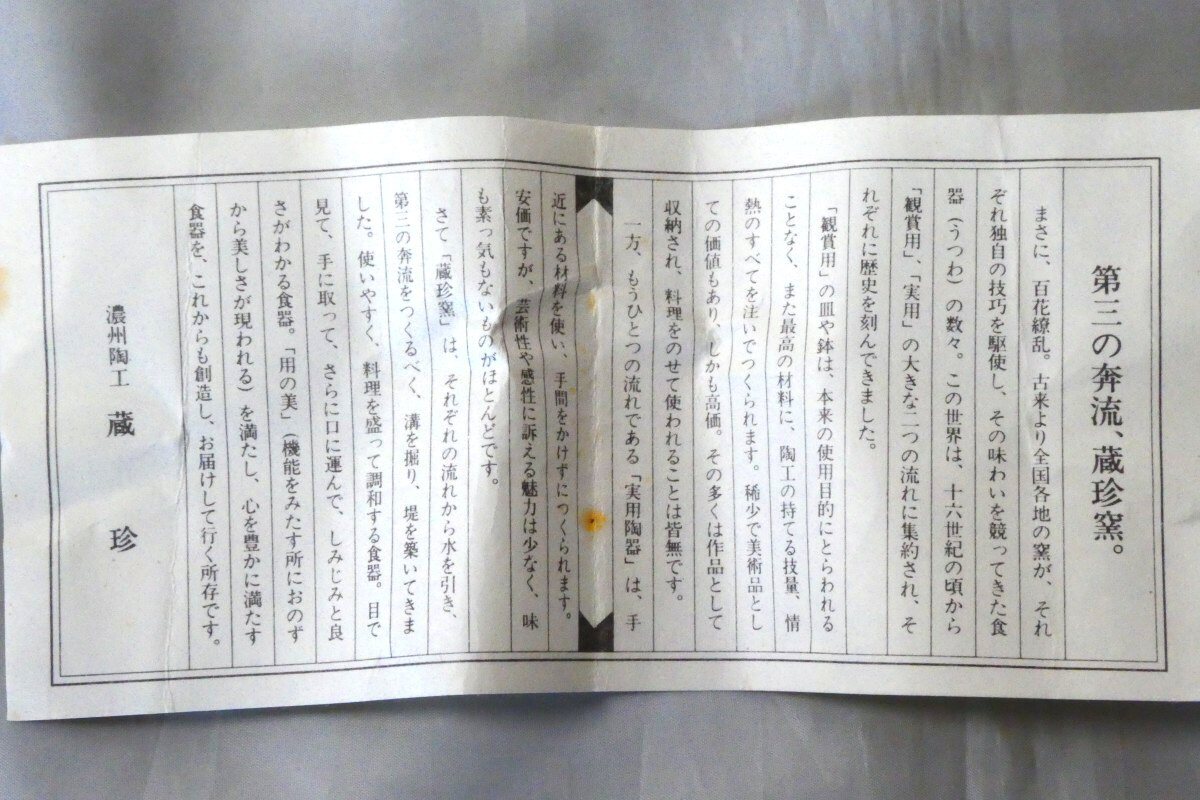 第三の奔流、蔵珍窯。
まさに、百花繚乱。古来より全国各地の窯が、それ
ぞれ独自の技巧を駆使し、その味わいを競ってきた食
器（うつわ）の数々。この世界は、十六世紀の頃から
「観賞用」、「実用」の大きな二つの流れに集約され、そ
れぞれに歴史を刻んできました。
「観賞用」の皿や鉢は、本来の使用目的にとらわれる
ことなく、また最高の材料に、陶工の持てる技量、情
熱のすべてを注いでつくられます。稀少で美術品とし
ての価値もあり、しかも高価。その多くは作品として
収納され、料理をのせて使われることは皆無です。
一方、もうひとつの流れである「実用陶器」は、手
近にある材料を使い、手間をかけずにつくられます。
安価ですが、芸術性や感性に訴える魅力は少なく、味
も素っ気もないものがほとんどです。
さて「蔵珍窯」は、それぞれの流れから水を引き、
第三の奔流をつくるべく、溝を掘り、堤を築いてきま
した。使いやすく、料理を盛って調和する食器。目で
見て、手に取って、さらに口に運んで、しみじみと良
さがわかる食器。「用の美」（機能をみたす所におのず
から美しさが現われる）を満たし、心を豊かに満たす
食器を、これからも創造し、お届けして行く所存です。
濃州陶工 蔵珍